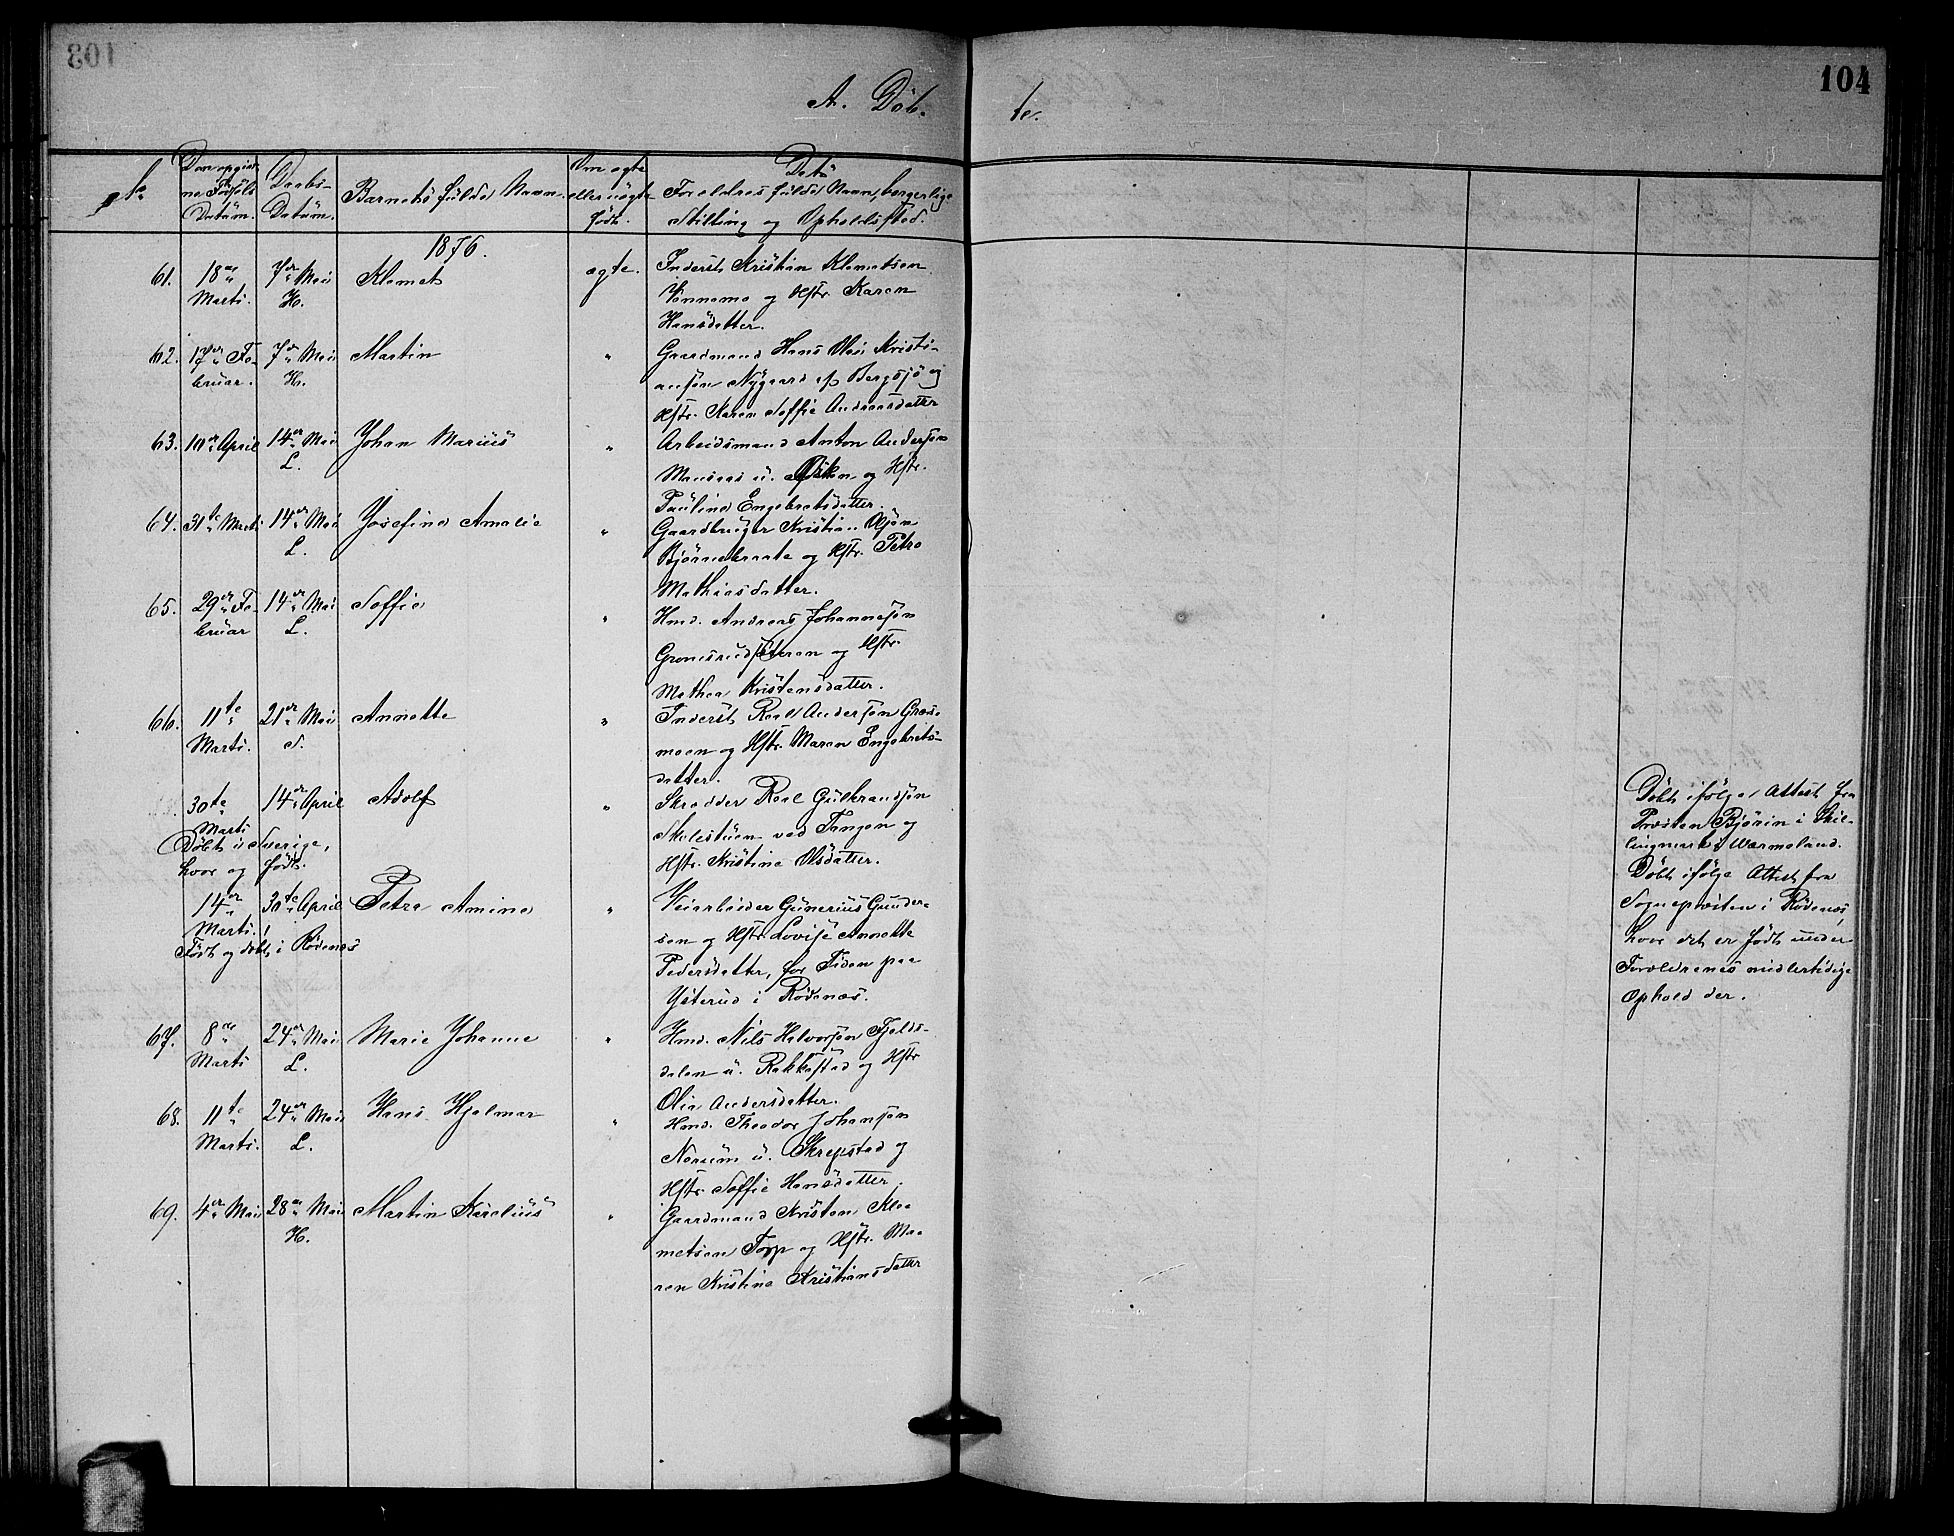 104
A. Døb. te.
No
Den opgiv-
ne Fødsels
Datum.
Daabs-
Datum.
Barnets fulde Navn.
Om ægte
eller uægte
født.
Dets
Forældres fulde Navn, borgerlige
Stilling og Opholdssted.
1876.
61. 18de Marts. 7de Mai H. Klemet ægte. Inderst Kristian Klemetsen
Vennemo og Hstr. Karen
Hansdatter.
62. 17de Fe- bruar. 7de Mai H. Martin " Gaardmand Hans Olai Kristi-
ansøn Nygaard af Bergsjø og
Hstr. Karen Soffie Andreasdatter
63. 10de April 14de Mai L. Johan Marius " Arbeidsmand Anton Andersøn
u. og Hstr.
Pauline Engebretsdatter.
64. 31te Marts 14de Mai L. Josefine Amalie " Gaardbruger Kristian Olsøn
Bjørnebraate og Hstr. Petra
Mathiasdatter.
65. 29de Fe- bruar 14de Mai L. Soffie " Hmd. Andreas Johannesøn
Grønesrudsæteren og Hstr.
Mathea Kristensdatter.
66. 11te Marts. 21de Mai S. Annette " Inderst Roal Andersøn Græs-
moen og Hstr. Maren Engebrets-
datter.
30te Marts 14de April Adolf " Skrædder Roal Gulbrandsøn
Døbt i Sverige, Skolestuen ved Tangen og
hvor og født. Hstr. Kristine Olsdatter.
14de Marts. 30te April Petra Amine " Veiarbeider Gunerius Gunder-
Født og døbt i Rødenes sen og Hstr. Lovise Annette
Pedersdatter, for Tiden paa
Ysterud i Rødenæs.
67. 8de Marts 24de Mai L. Marie Johanne " Hmd. Nils Halvorsøn Fjelds-
dalen u. Rakkestad og Hstr
Olia Andersdatter.
68. 11te Marts. 24de Mai L. Hans Hjalmar " Hmd. Theodor Johansøn
Norum u. Skrepstad og
Hstr Soffie Hansdatter.
69. 4de Mai 28de Mai H. Martin Karelius " Gaardmand Kristen Kle-
metsen Torp og Hstr. Ma-
ren Kristine Kristiansdatter
Døbt ifølge Attest fra
Præsten Bjørin i Skil-
lingmark i Wærmeland.
Døbt ifølge Attest fra
Sognepræsten i Rødenæs,
hvor det er født under
Forældrenes midlertidige
Ophold der.